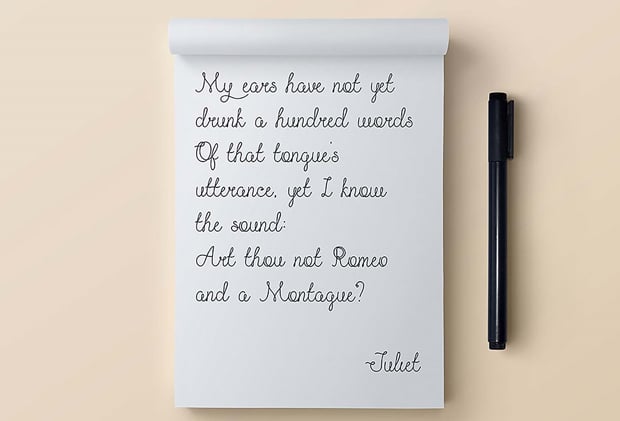 My ears have not yet
drunk a hundred words
Of that tongue's
utterance, yet I know
the sound:
Art thou not Romeo
and a Montague?
~Juliet